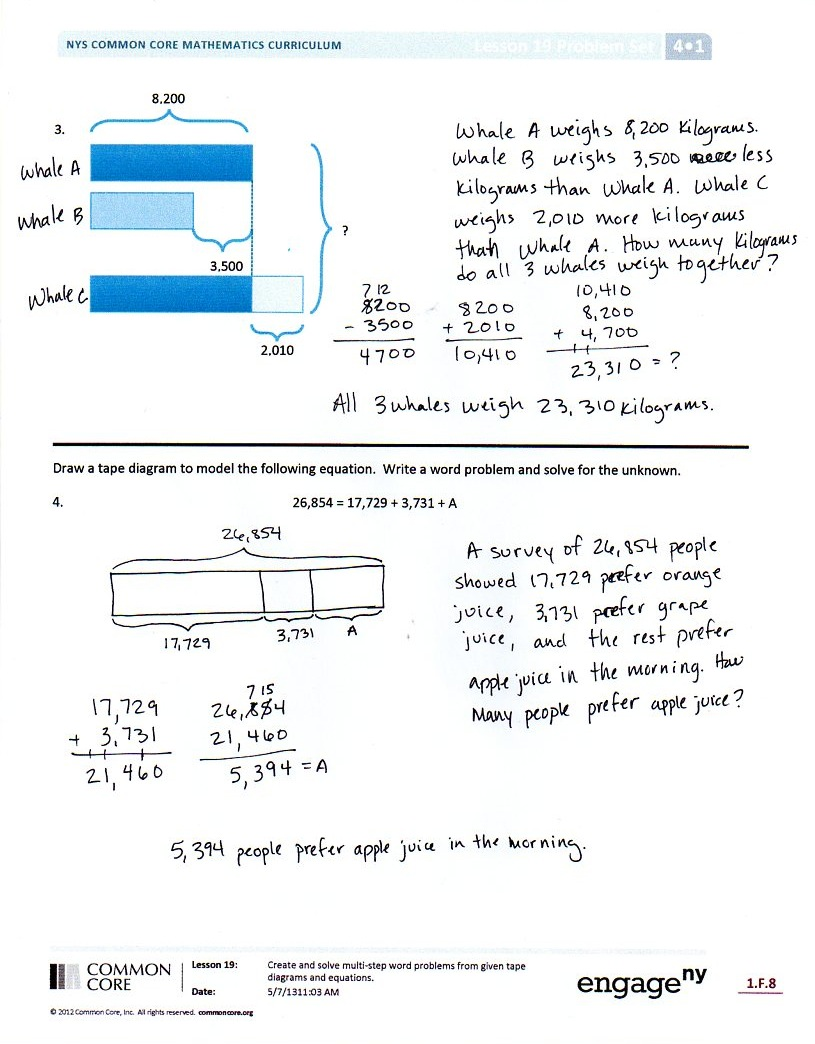 NYS COMMON CORE MATHEMATICS CURRICULUM Lesson 19 Problem Set 4•1
8,200
3.
Whale A
Whale B
3,500
Whale C
2,010
?
Whale A weighs 8,200 Kilograms.
Whale B weighs 3,500 less
Kilograms than Whale A. Whale C
weighs 2,010 more kilograms
than Whale A. How many Kilograms
do all 3 whales weigh together?
7 12
8200
- 3500
4700
8200
+ 2010
10,410
10,410
8,200
+ 4,700
23,310 = ?
All 3 whales weigh 23,310 kilograms.
Draw a tape diagram to model the following equation. Write a word problem and solve for the unknown.
4. 26,854 = 17,729 + 3,731 + A
26,854
17,729 3,731 A
A survey of 26,854 people
showed 17,729 prefer orange
juice, 3,731 prefer grape
juice, and the rest prefer
apple juice in the morning. How
Many people prefer apple juice?
17,729
+ 3,731
21,460
7 15
26,854
21,460
5,394 = A
5,394 people prefer apple juice in the morning.
COMMON
CORE
Lesson 19: Create and solve multi-step word problems from given tape
diagrams and equations.
Date: 5/7/1311:03 AM
engage ny
1.F.8
© 2012 Common Core, Inc. All rights reserved. commoncore.org